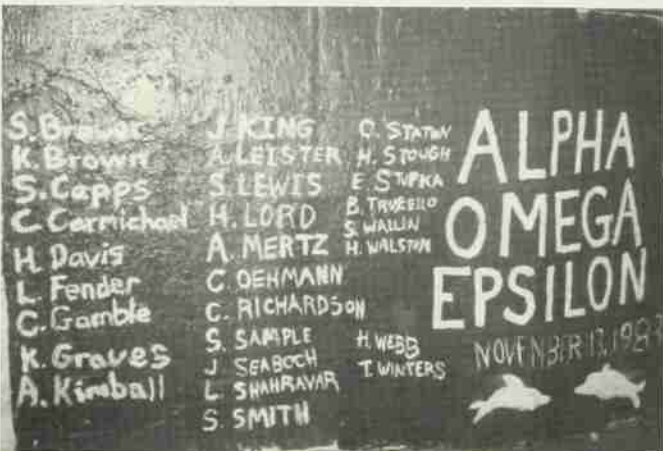 S. Brewer
K. Brown
S. Capps
C. Carmichael
H. Davis
L. Fender
C. Gamble
K. Graves
A. Kimball
J. KING
A. LEISTER
S. LEWIS
H. LORD
A. MERTZ
C. OEHMANN
C. RICHARDSON
S. SAMPLE
J. SEABOCH
L. SHAHRAVAR
S. SMITH
C. STATON
H. STOUGH
E. STUPKA
B.
S. WALLIN
H. WALSTON
H. WEBB
T. WINTERS
ALPHA
OMEGA
EPSILON
NOVEMBER 13,